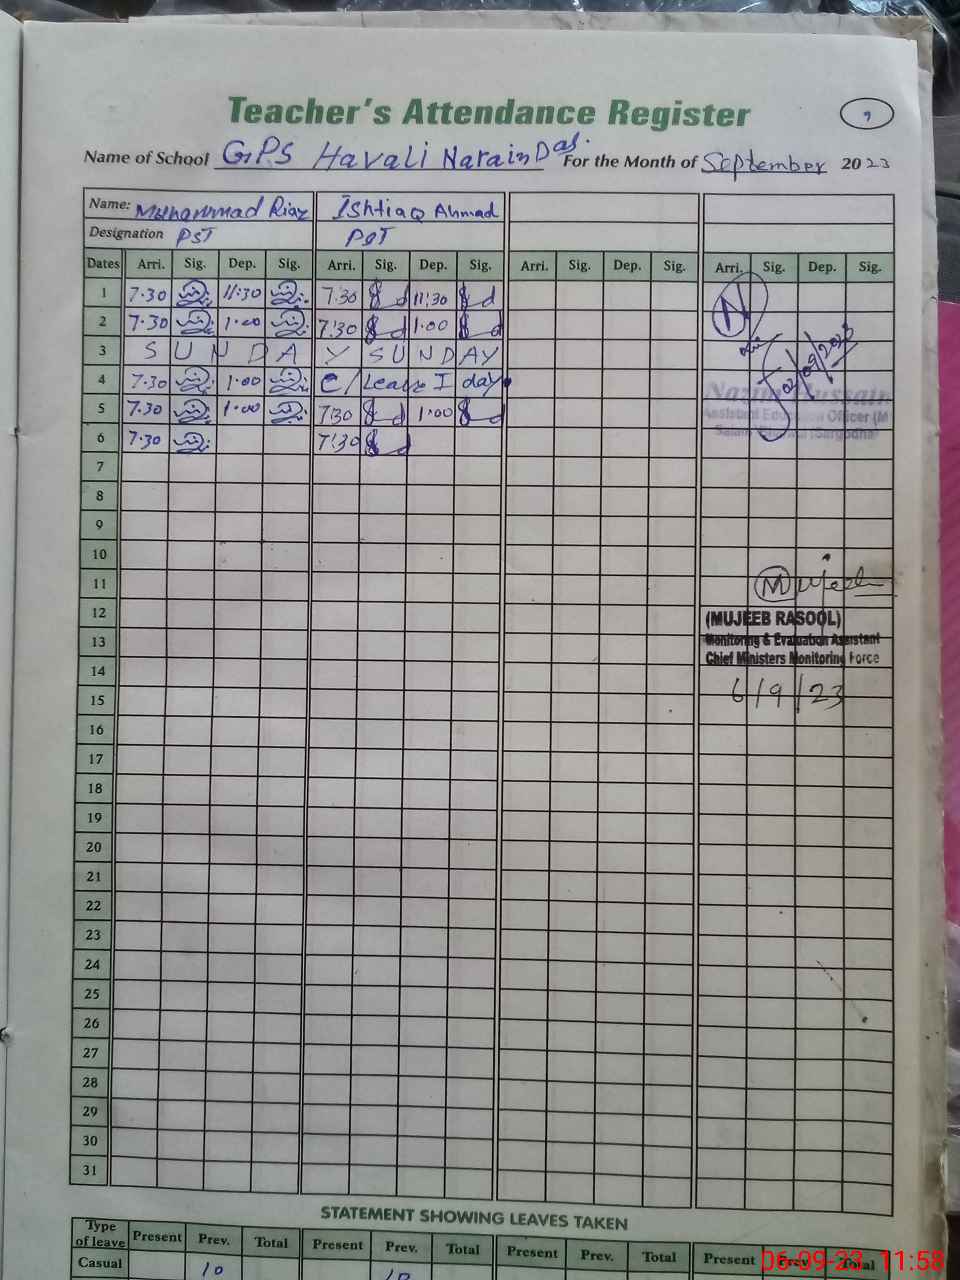 Teacher's Attendance Register
9
Name of School GPS Havali Narain Das. For the Month of September 2023
Name: Muhammad Riaz Ishtiaq Ahmad
Designation PST PST
Dates Arri. Sig. Dep. Sig. Arri. Sig. Dep. Sig. Arri. Sig. Dep. Sig. Arri. Sig. Dep. Sig.
1 7.30 11:30 7.30 11:30
2 7.30 1.00 7:30 1.00
3 S U N D A Y SUNDAY
4 7.30 1.00 C/Leave I day
5 7.30 1.00 7:30 1.00
6 7.30 7:30
02/09/2023
Nazim Hussain
Assistant Education Officer (M
7
8
9
10
11 Mujeeb
12
(MUJEEB RASOOL)
13 Monitoring & Evaluation Assistant
Chief Ministers Monitoring Force
14
15 6/9/23
16
17
18
19
20
21
22
23
24
25
26
27
28
29
30
31
STATEMENT SHOWING LEAVES TAKEN
Type of leave Present Prev. Total Present Prev. Total Present Prev. Total Present Prev. Total
Casual 10 10
06-09-23 11:58